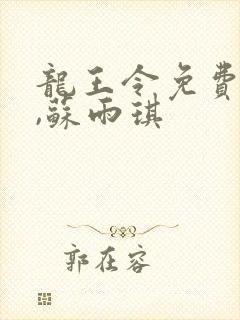 龍王令免費
,蘇雨琪
郭在容